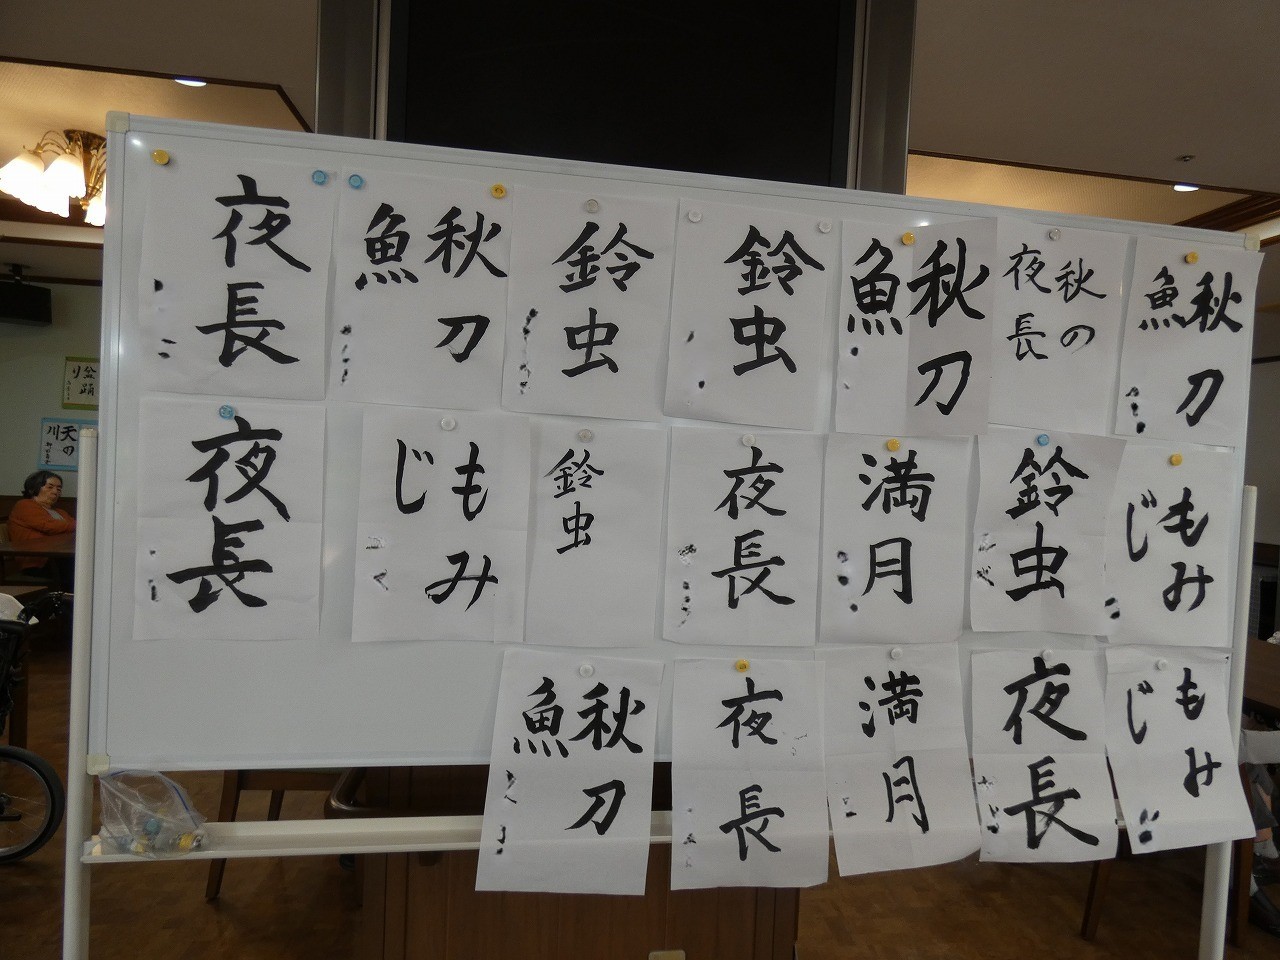 夜長
秋刀
魚
鈴虫
鈴虫
秋刀
魚
秋の
夜長
秋刀
魚
夜長
もみ
じ
鈴虫
夜長
満月
鈴虫
もみ
じ
秋刀
魚
夜長
満月
夜長
もみ
じ
盆踊
り
天の
川